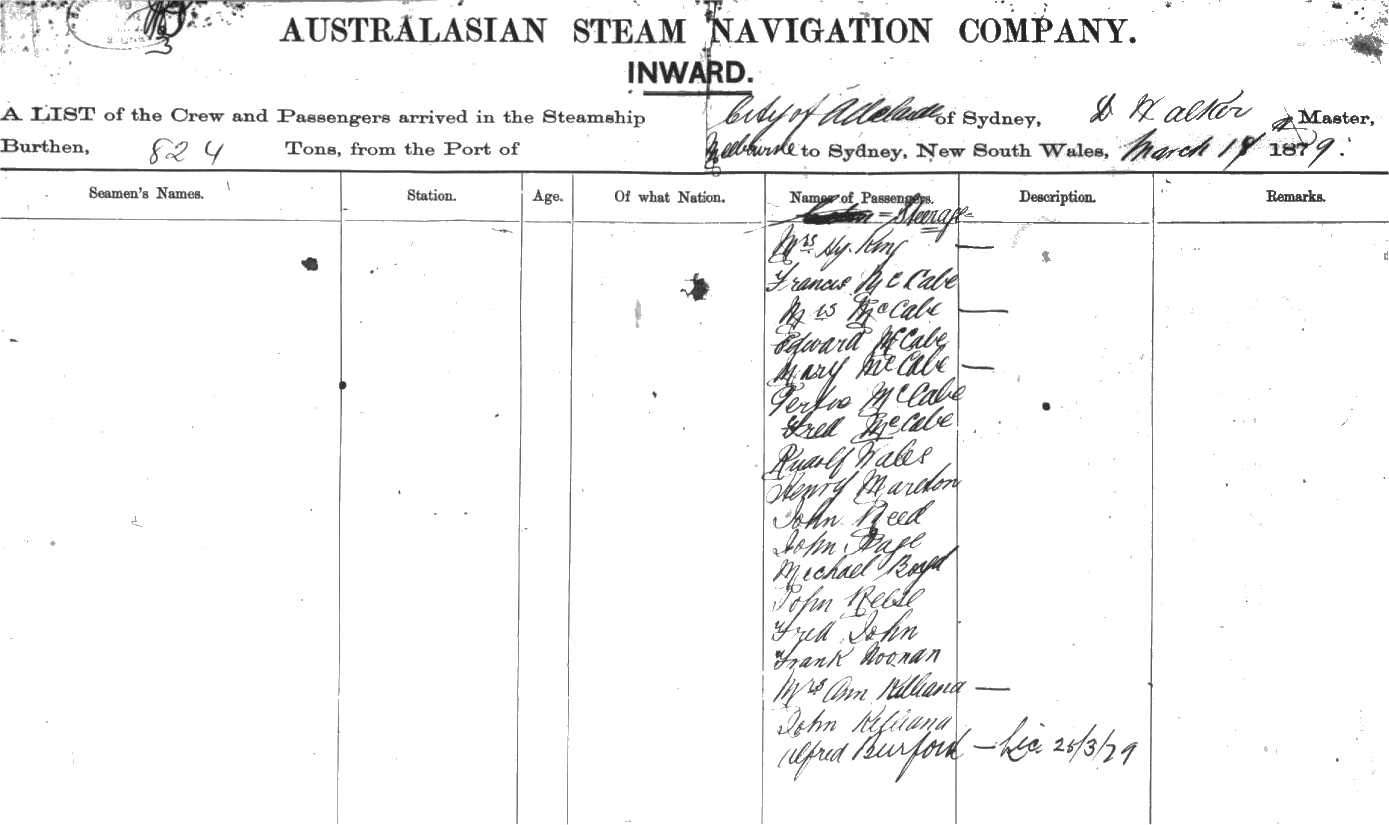 AUSTRALASIAN STEAM NAVIGATION COMPANY.
INWARD.
A LIST of the Crew and Passengers arrived in the Steamship City of Adelaide of Sydney, D Walker Master,
Burthen, 824 Tons, from the Port of Melbourne to Sydney, New South Wales, March 18 1879.
Seamen's Names. Station. Age. Of what Nation. Names of Passengers. Description. Remarks.
= Steerage =
Mrs Hy. King —
Francis McCabe
Mrs McCabe —
Edward McCabe
Mary McCabe —
McCabe
Fred McCabe
Rudolf Wales
Henry Marston
John Reed
John Page
Michael Boyd
John Reese
Fred John
Frank Noonan
Mrs Ann —
John
Alfred Burford — Lic. 25/3/79